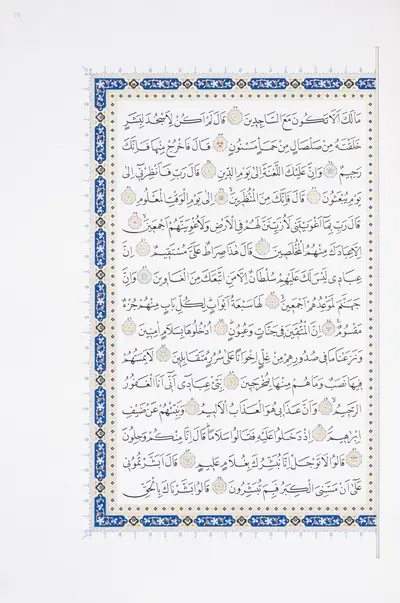 مَالَكَ اَلَّا تَكُونَ مَعَ السَّاجِدِينَ قَالَ لَمْ اَكُنْ لِاَسْجُدَ لِبَشَرٍ
خَلَقْتَهُ مِنْ صَلْصَالٍ مِنْ حَمَاٍ مَسْنُونٍ قَالَ فَاخْرُجْ مِنْهَا فَاِنَّكَ
رَجِيمٌ وَاِنَّ عَلَيْكَ اللَّعْنَةَ اِلٰى يَوْمِ الدِّينِ قَالَ رَبِّ فَاَنْظِرْنِي اِلٰى
يَوْمِ يُبْعَثُونَ قَالَ فَاِنَّكَ مِنَ الْمُنْظَرِينَ اِلٰى يَوْمِ الْوَقْتِ الْمَعْلُومِ
قَالَ رَبِّ بِمَا اَغْوَيْتَنِي لَاُزَيِّنَنَّ لَهُمْ فِي الْاَرْضِ وَلَاُغْوِيَنَّهُمْ اَجْمَعِينَ
اِلَّا عِبَادَكَ مِنْهُمُ الْمُخْلَصِينَ قَالَ هٰذَا صِرَاطٌ عَلَيَّ مُسْتَقِيمٌ اِنَّ
عِبَادِي لَيْسَ لَكَ عَلَيْهِمْ سُلْطَانٌ اِلَّا مَنِ اتَّبَعَكَ مِنَ الْغَاوِينَ وَاِنَّ
جَهَنَّمَ لَمَوْعِدُهُمْ اَجْمَعِينَ لَهَا سَبْعَةُ اَبْوَابٍ لِكُلِّ بَابٍ مِنْهُمْ جُزْءٌ
مَقْسُومٌ اِنَّ الْمُتَّقِينَ فِي جَنَّاتٍ وَعُيُونٍ اُدْخُلُوهَا بِسَلَامٍ اٰمِنِينَ
وَنَزَعْنَا مَا فِي صُدُورِهِمْ مِنْ غِلٍّ اِخْوَانًا عَلٰى سُرُرٍ مُتَقَابِلِينَ لَا يَمَسُّهُمْ
فِيهَا نَصَبٌ وَمَا هُمْ مِنْهَا بِمُخْرَجِينَ نَبِّئْ عِبَادِي اَنِّي اَنَا الْغَفُورُ
الرَّحِيمُ وَاَنَّ عَذَابِي هُوَ الْعَذَابُ الْاَلِيمُ وَنَبِّئْهُمْ عَنْ ضَيْفِ
اِبْرٰهِيمَ اِذْ دَخَلُوا عَلَيْهِ فَقَالُوا سَلَامًا قَالَ اِنَّا مِنْكُمْ وَجِلُونَ
قَالُوا لَا تَوْجَلْ اِنَّا نُبَشِّرُكَ بِغُلَامٍ عَلِيمٍ قَالَ اَبَشَّرْتُمُونِي
عَلٰى اَنْ مَسَّنِيَ الْكِبَرُ فَبِمَ تُبَشِّرُونَ قَالُوا بَشَّرْنَاكَ بِالْحَقِّ